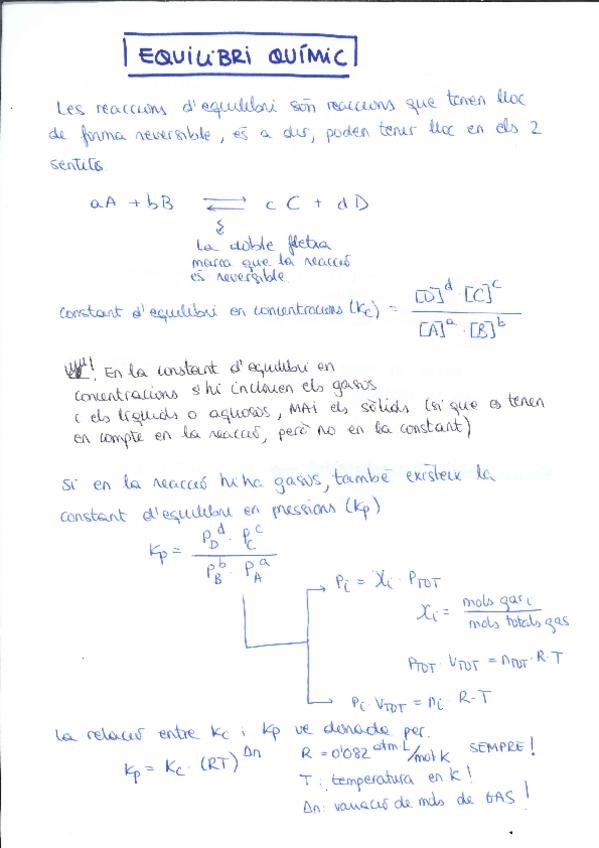 EQUILIBRI QUÍMIC
Les reaccions d'equilibri són reaccions que tenen lloc
de forma reversible, és a dir, poden tenir lloc en els 2
sentits.
aA + bB ⇌ cC + dD
La doble fletxa
marca que la reacció
és reversible
constant d'equilibri en concentracions (Kc) = [D]^d · [C]^c / [A]^a · [B]^b
! En la constant d'equilibri en
concentracions s'hi inclouen els gasos
i els líquids o aquosos, MAI els sòlids (si que es tenen
en compte en la reacció, però no en la constant)
Si en la reacció hi ha gasos, també existeix la
constant d'equilibri en pressions (Kp)
Kp = P_D^d · P_C^c / P_B^b · P_A^a
Pi = Xi · PTOT
Xi = mols gas i / mols totals gas
PTOT · VTOT = nTOT · R · T
Pi · VTOT = ni · R · T
La relació entre Kc i Kp ve donada per:
Kp = Kc · (RT)^Δn
R = 0'082 atm·L/mol·K SEMPRE!
T: temperatura en K!
Δn: variació de mols de GAS!